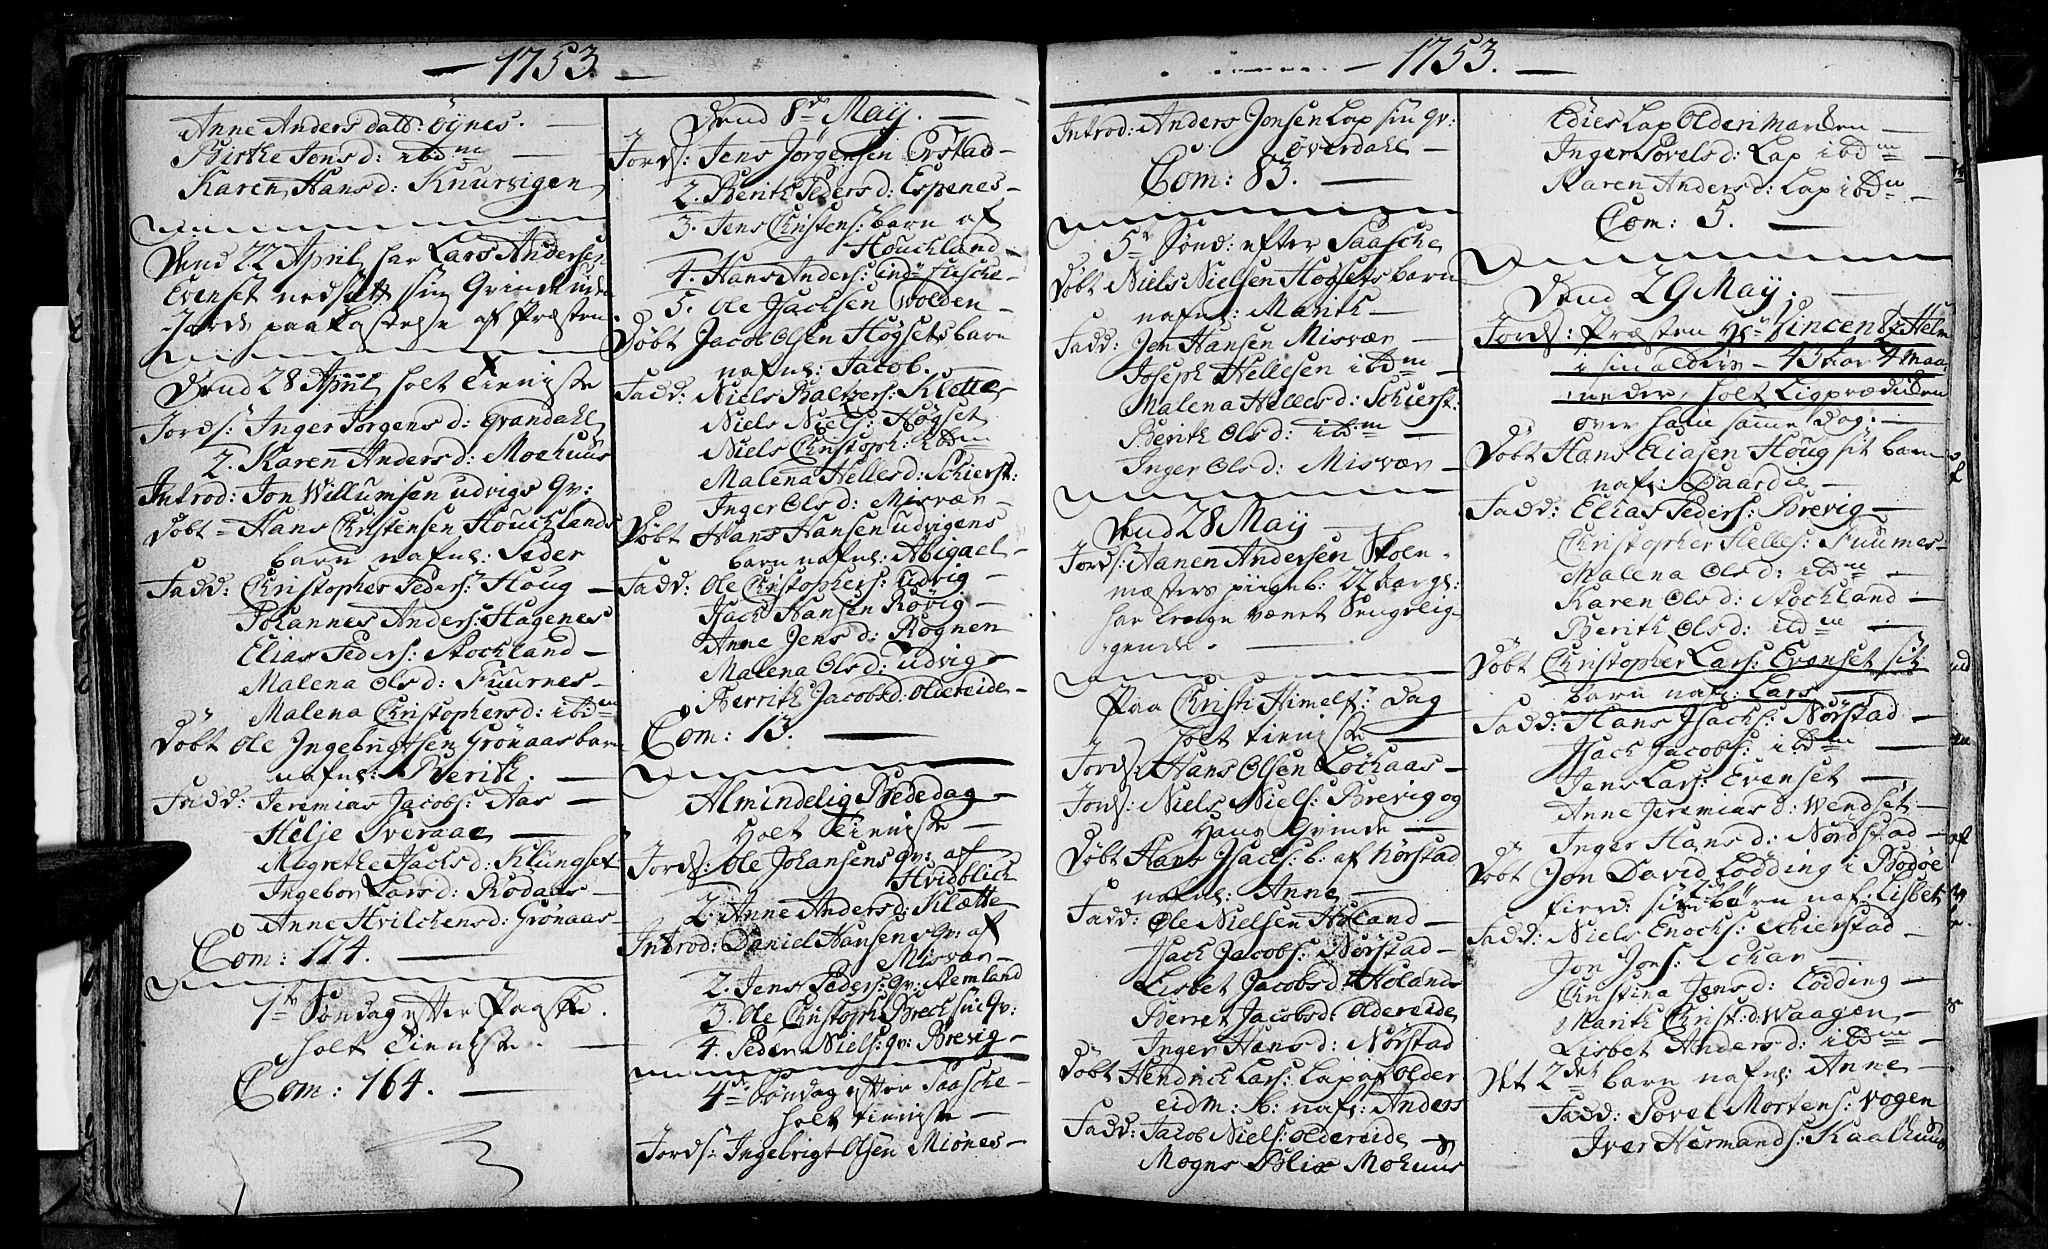 1753.
Anne Anders datt: Öynes.
Birthe Jons d: ibdm
Karen Hans d: Knurvigen
Dend 22 April har Lars Andersen
Evenset nedsatt sin Qvinde udi
Jorde paa Kastelse af Præsten
Dend 28 April holt Tieniste
Jords: Inger Jörgens d: Evandahl
2. Karen Anders d: Moehuus
Introd: Jon Willumsen udvigs Qv:
Döbt Hans Christensen Houcklands
barn nafnl: Peder
Fadd: Christopher Peders: Höug
Johannes Anders: Hagenes
Elias Peders: Stockland
Malena Ols d: Fuurnes
Malena Christophers d: ibdm
Döbt Ole Ingebrigtsen Grönaas barn
nafnl: Berith.
Fadd: Jeremias Jacobs: Aas
Helje Sveraae
Magrethe Jsachs d: Klüngset
Ingebor Lars d: Rödaas
Anne Hvilchens d: Grönaas
Com: 114.
1te Söndag efter Paaske
holt Tieniste.
Com: 164.
Dend 8de Maij.
Jords: Jens Jörgensen Erstad
2. Berith Peders d: Espenes
3. Jens Christens: barn af
Houckland
4. Hans Anders: Lindv Fusche
5. Ole Jsachsen Wolden
Döbt Jacob Olsen Högsets barn
nafnl: Jacob.
Fadd: Niels Baltzers: Klette
Niels Niels: Högset
Niels Christoph: ibdm
Malena Helles d: Schierst:
Inger Ols d: Misvær
Döbt Hans Hansen udvigens
barn nafnl: Abigael
Fadd: Ole Christophers: udvig
Jsach Hansen Rövig
Anne Jens d: Rognen
Malena Ols d: udvig
Berrith Jacobs d: oldereide
Com: 13.
Almindelig Bededag
Holt Tieniste
Jords: Ole Johansens qv: af
Hvidblich
2. Anne Anders d: Klætte
Introd: Daniel Hansens qv: af
Misvær
2. Jens Peders: qv: Remland
3. Ole Christoph: Brech sin Qv:
4. Peder Niels: qv: Brevig
4de Söndag efter Paasche
holt tieniste
Jords: Ingebrigt Olsen Miönes
1753.
Introd: Anders Jonsen Lap sin qv:
Överdahl
Com: 83.
5te Sönd: efter Paasche
Döbt Niels Nielsen Högsets barn
nafnl: Marith
Fadd: Jon Hansen Misvær
Joseph Hellesen ibdm
Malena Helles d: Schierst:
Berith Ols d: ibdm
Inger Ols d: Misvær
Dend 28 Maij
Jords: Aanen Andersen Skoel
mæsters piigeb: 22 aar gl:
har længe været Sengelig-
gende.
Paa Christi Himelf: Dag
holt tieniste
Jords: Hans Olsen Löchaas
Jords: Niels Niels: Brevig og
Hans Qvinde
Döbt Hans Jsachs: b: af Nörstad
nafnl: Anne
Fadd: Ole Nielsen Höland
Jsach Jacobs: Nörstad
Lisbet Jacobs d: Höland
Berret Jacobs d: oldereide
Inger Hans d: Nörstad
Döbt Hendrich Lars: Lap af older
eidm: b: nafl: Anders
Fadd: Jacob Niels: oldereide
Mogns Blix Mohuus
Edies Lap olden marken
Inger Povels d: Lap ibdm
Karen Anders d: Lap ibdm
Com: 5.
Dend 29 Maij.
Jords: Præsten Hr Vincentz Helm
i sin alders 43 aar 4 maa
neder, holt Ligprædicken
over ham samme dag.
Döbt Hans Eliasen Höug sit barn
nafl: Baardie
Fadd: Elias Peders: Brevig
Christopher Helles: Fuurnes
Malena Ols d: ibdm
Karen Ols d: Stockland
Berith Ols d: ibdm
Döbt Christopher Lars: Evenset sit
barn naf: Lars
Fadd: Hans Jsachs: Nörstad
Jsach Jacobs: ibdm
Jens Lars: Evenset
Anne Jeremias d: Wendset
Inger Hans d: Nördstad
Döbt Jon David Lödding i Bodöe
fierd: sin börn naf: Lisbet
Fadd: Niels Enochs: Schierstad
Jon Jons: Lchar
Christina Jens d: Lödding
Marith Christ: d: Waagen
Lisbet Anders d: ibdm
Det 2det barn nafnl: Anne
Fadd: Povel Mortens: Vogen
Iver Hermands: Kaalhuus